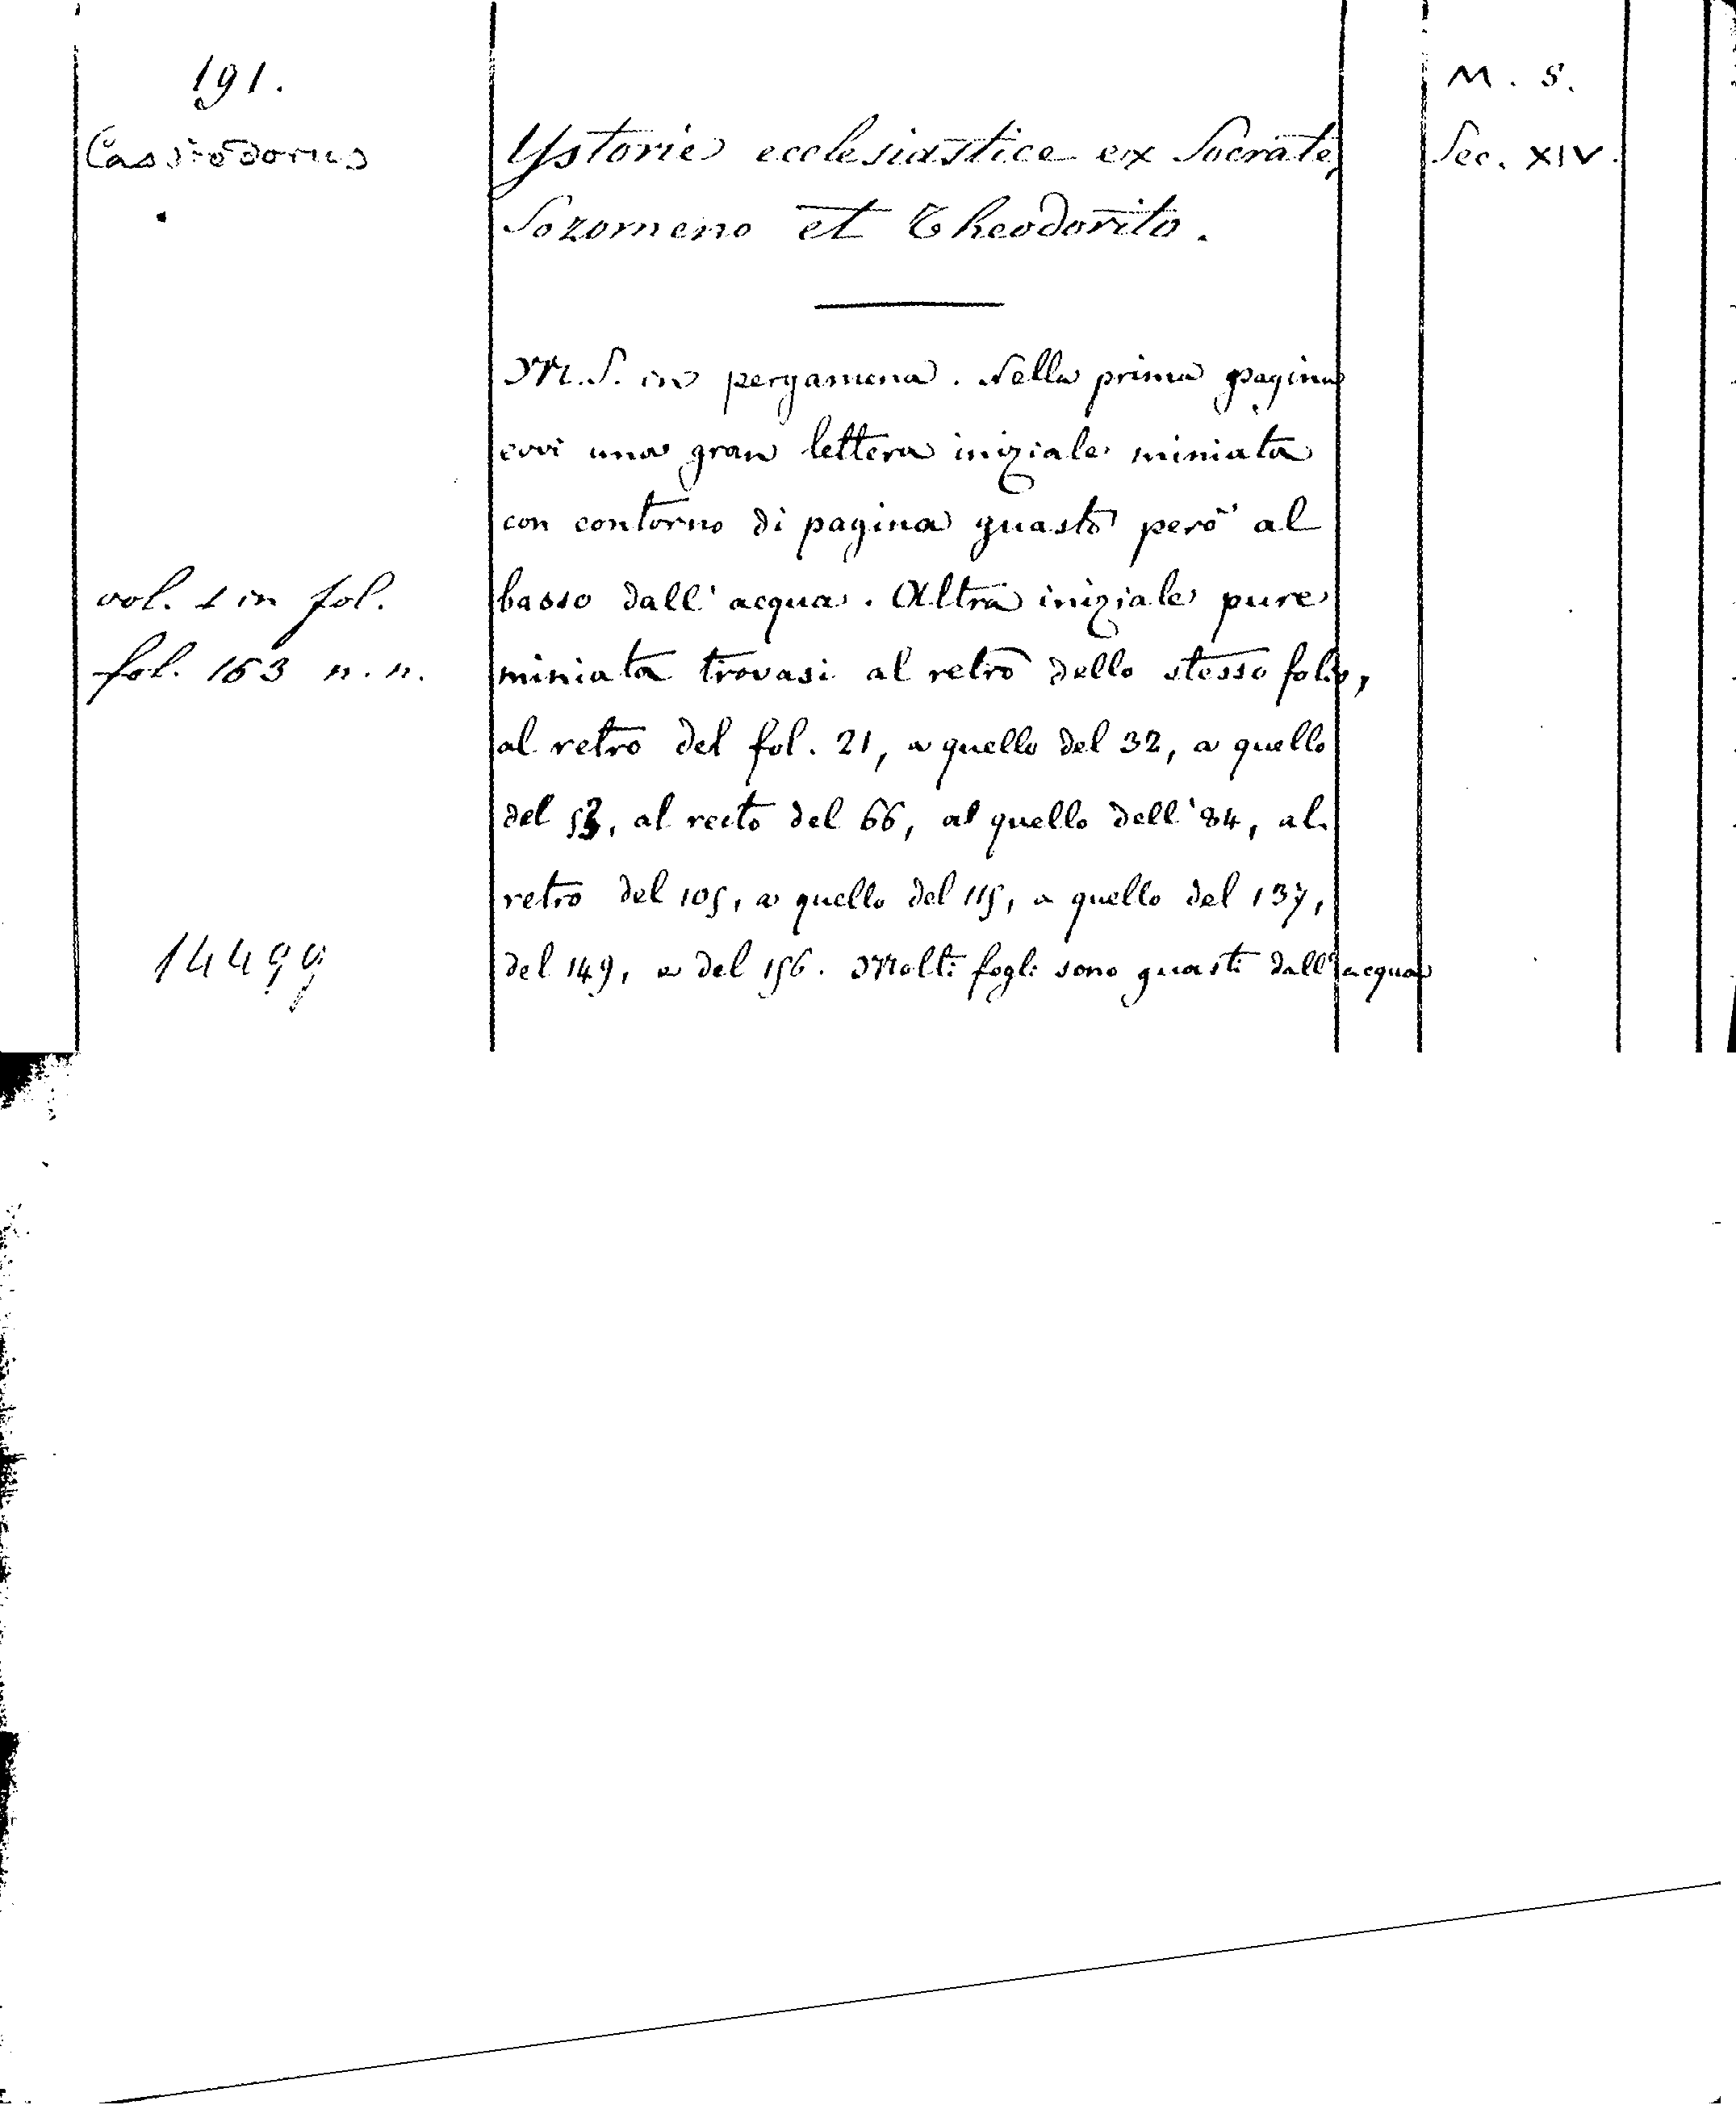 191.
M. S.
Cassiodorus
Ystorie ecclesiastice ex Socrate,
Sec. XIV.
Sozomeno et Theodorito.
M.S. in pergamena. Nella prima pagina
evvi una gran lettera iniziale miniata
con contorno di pagina guasto però al
vol. 1 in fol.
basso dall'acqua. Altra iniziale pure
fol. 163 n. n.
miniata trovasi al retro dello stesso folio,
al retro del fol. 21, a quello del 32, a quello
del 53, al recto del 66, al quello dell'84, al
retro del 105, a quello del 115, a quello del 137,
14499
del 149, a del 156. Molti fogli sono guasti dall'acqua